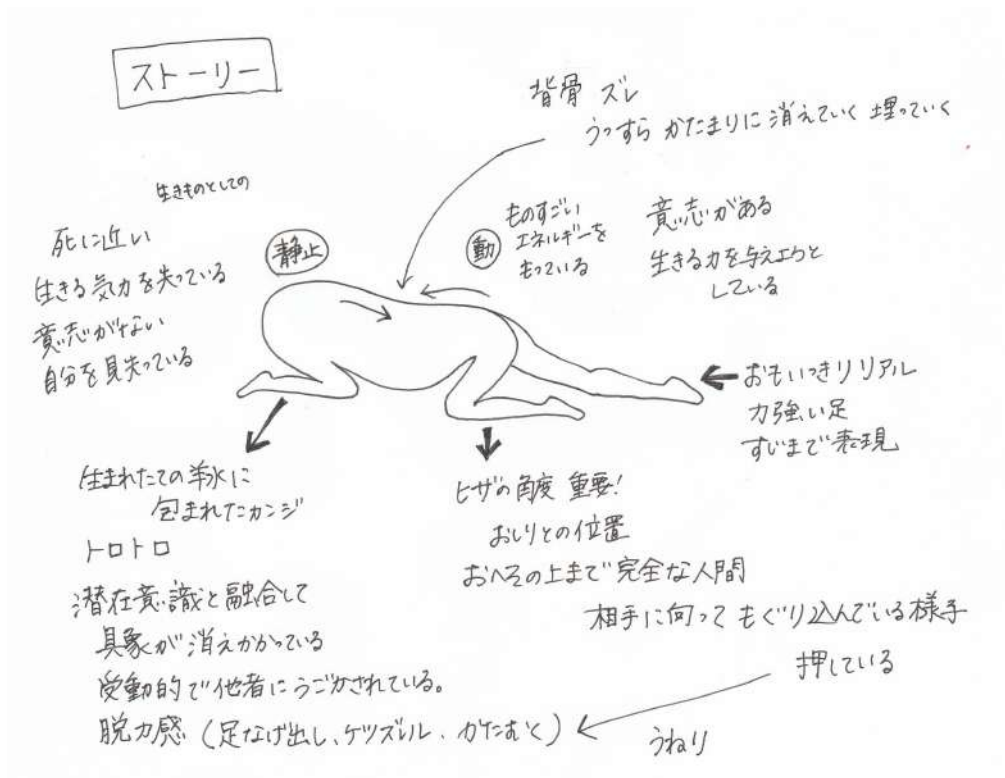 ストーリー
背骨 ズレ
うっすら かたまりに 消えていく 埋っていく
生きものとしての
死に近い
生きる気力を失っている
意志がない
自分を見失っている
静止
動
ものすごい
エネルギーを
もっている
意志がある
生きる力を与えようと
している
おもいっきりリアル
力強い足
すじまで表現
生まれたての羊水に
包まれたカンジ
トロトロ
潜在意識と融合して
具象が消えかかっている
受動的で他者にうごかされている。
脱力感 (足なげ出し、ケツズレル、かたむく)
ヒザの角度 重要!
おしりとの位置
おへその上まで完全な人間
相手に向って もぐり込んでいる様子
押している
うねり